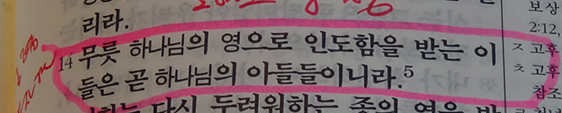 리라.
14 무릇 하나님의 영으로 인도함을 받는 이
들은 곧 하나님의 아들들이니라.5
다시 두려워하는 종의 영을 받
보상
2:12,
ㅈ 고후
ㅊ 고후
참조